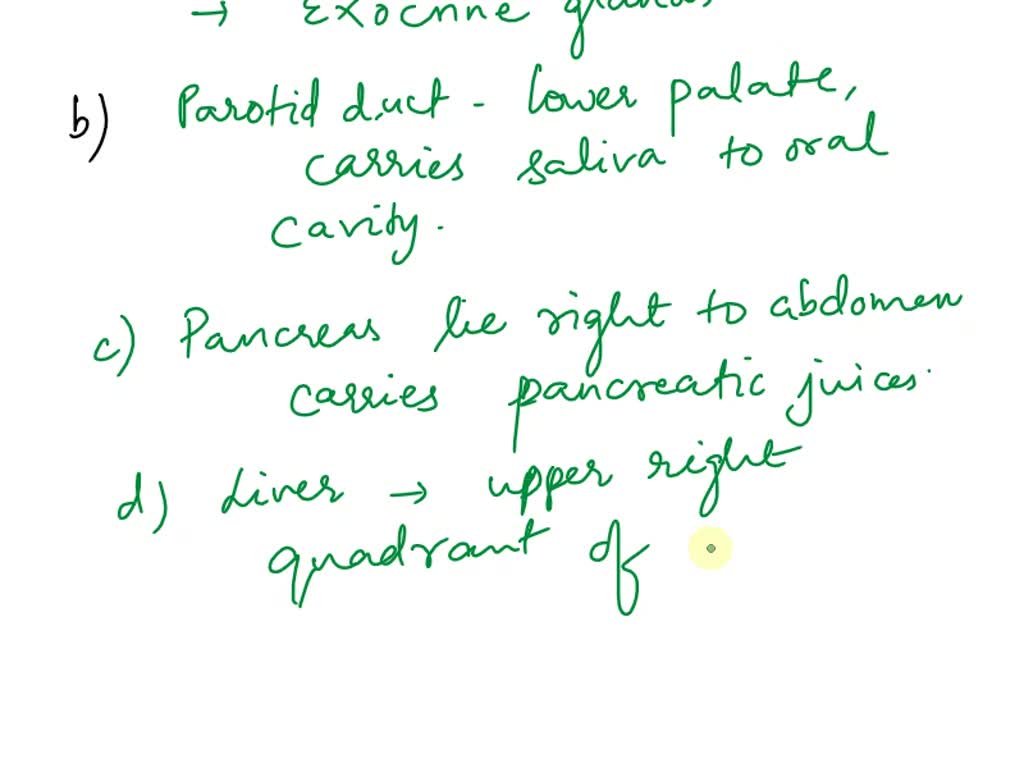 → Exocrine glands
b) Parotid duct - lower palate,
carries saliva to oral
cavity.
c) Pancreas lie right to abdomen
carries pancreatic juices.
d) Liver → upper right
quadrant of